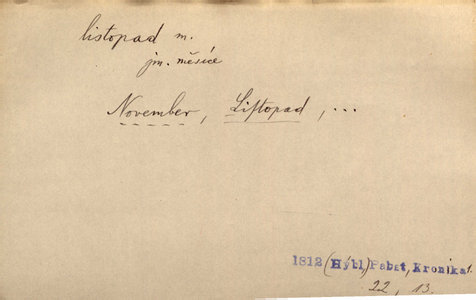 listopad m.
jm. měsíce
November, Liſtopad, ...
1812 (Hýbl,) Pabst, Kronika
22, 13.